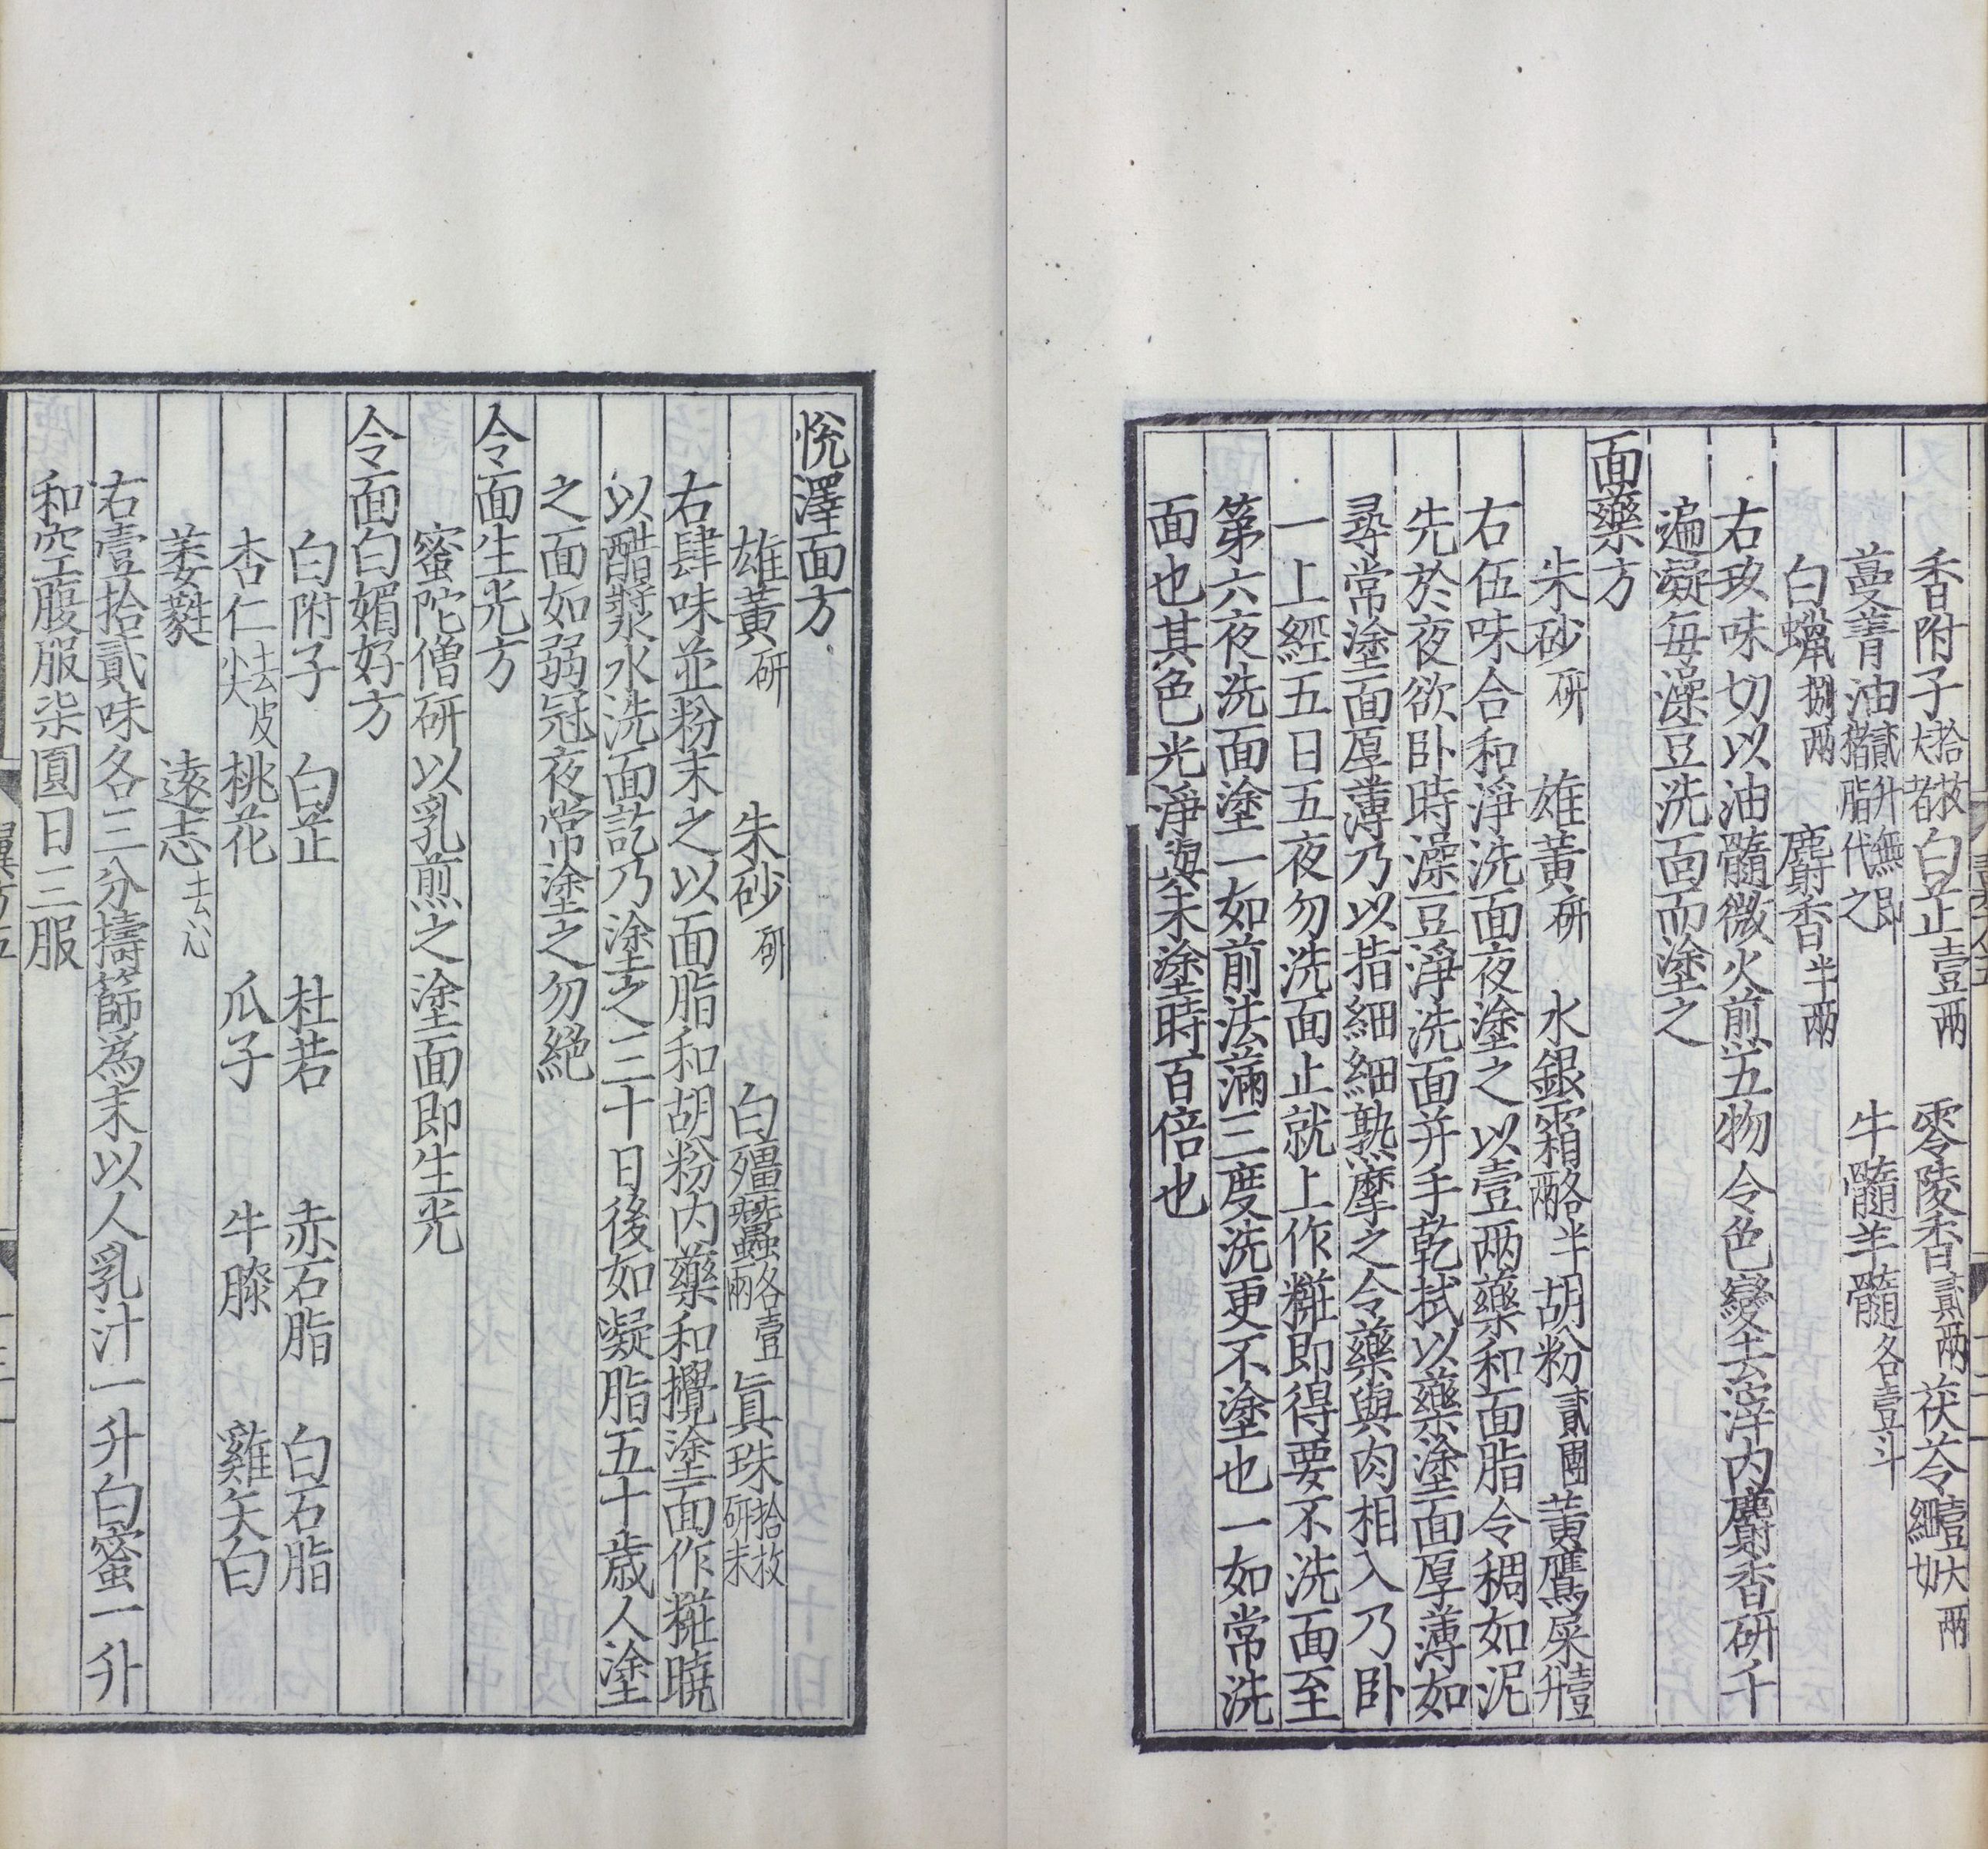 香附子拾枚大者白芷壹两 零陵香貳两茯苓壹大两細切
蔓菁油貳升無即猪脂代之 牛髓羊髓各壹斗
白蠟捌两 麝香半两
右玖味切以油髓微火煎五物令色變去滓内麝香研千
遍凝每澡豆洗面而塗之
面藥方
朱砂研 雄黃研 水銀霜各半两胡粉貳團黃鷹屎壹升
右伍味合和淨洗面夜塗之以壹两藥和面脂令稠如泥
先於夜欲卧時澡豆淨洗面并手乾拭以藥塗面厚薄如
尋常塗面厚薄乃以指細細熟摩之令藥與肉相入乃卧
一上經五日五夜勿洗面止就上作糚即得要不洗面至
第六夜洗面塗一如前法滿三度洗更不塗也一如常洗
面也其色光淨與未塗時百倍也
悅澤面方
雄黃研 朱砂研 白殭蠶各壹两 眞珠拾枚研末
右肆味並粉末之以面脂和胡粉内藥和攪塗面作糚曉
以醋漿水洗面訖乃塗之三十日後如凝脂五十歲人塗
之面如弱冠夜常塗之勿絶
令面生光方
蜜陀僧研以乳煎之塗面即生光
令面白媚好方
白附子 白芷 杜若 赤石脂 白石脂
杏仁去皮尖 桃花 瓜子 牛膝 雞矢白
萎蕤 遠志去心
右壹拾貳味各三分擣篩為末以人乳汁一升白蜜一升
和空腹服柒圓日三服